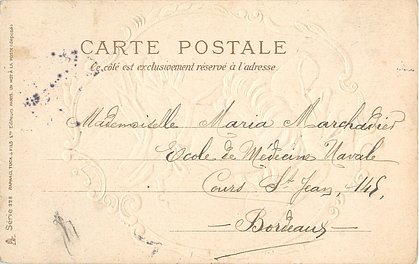 CARTE POSTALE
Ce côté est exclusivement réservé à l'adresse
Mademoiselle Maria Marchadier
Ecole de Médecine Navale
Cours St Jean, 145,
— Bordeaux —
Série 978 RAPHAEL TUCK & FILS